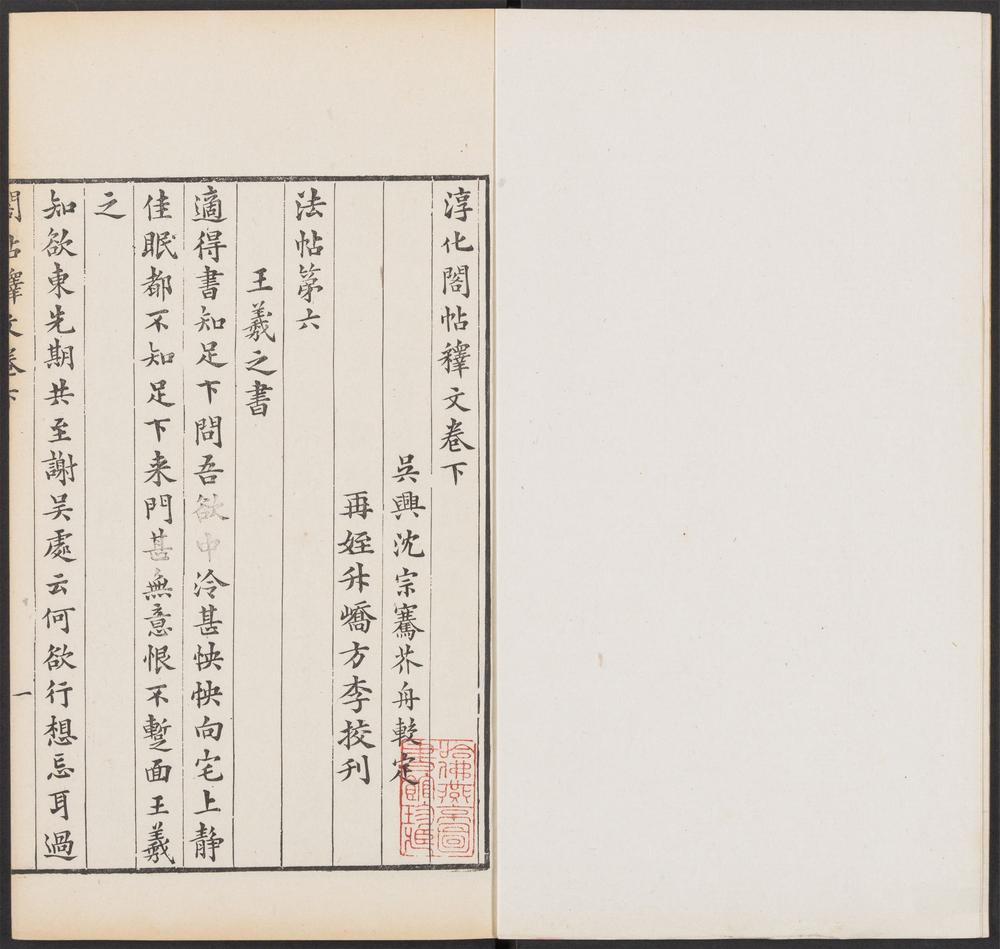 淳化閣帖釋文卷下
吳興沈宗騫芥舟較定
再姪升嶠方李挍刋
法帖第六
王羲之書
適得書知足下問吾欲中泠甚怏怏向宅上靜
佳眠都不知足下来門甚無意恨不暫面王羲
之
知欲東先期共至謝吴處云何欲行想忘耳過
閣帖釋文卷下
一
哈佛燕京圖
書館珍藏